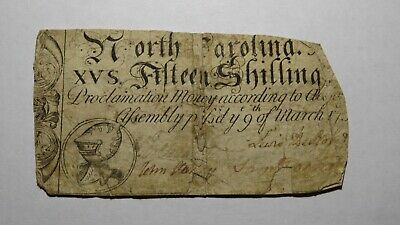 North Carolina.
XVS. Fifteen Shilling
Proclamation Money according to
Assembly pass'd yᵉ 9th of March
John